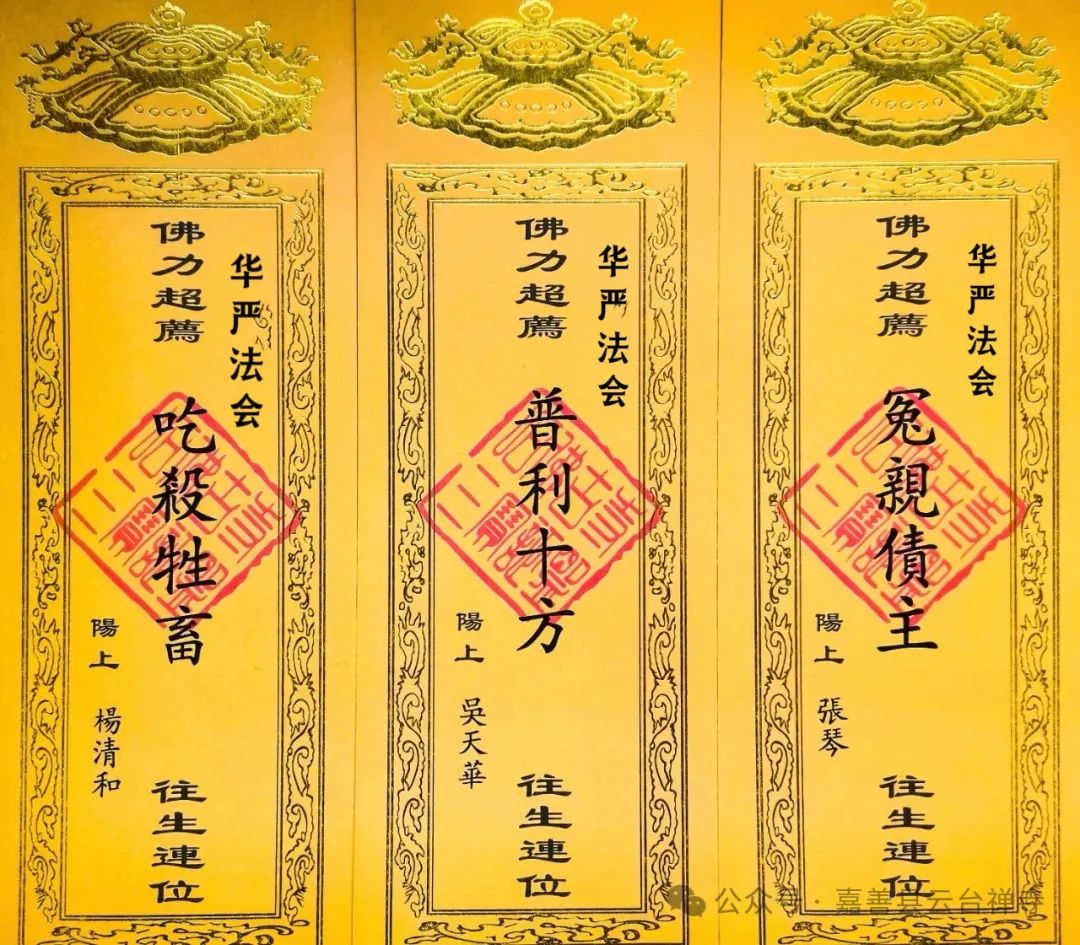 华严法会
佛力超薦
冤親債主
往生連位
陽上 張琴
华严法会
佛力超薦
普利十方
往生連位
陽上 吳天華
华严法会
佛力超薦
吃殺牲畜
往生連位
陽上 楊清和
公众号·嘉善县云台禅寺